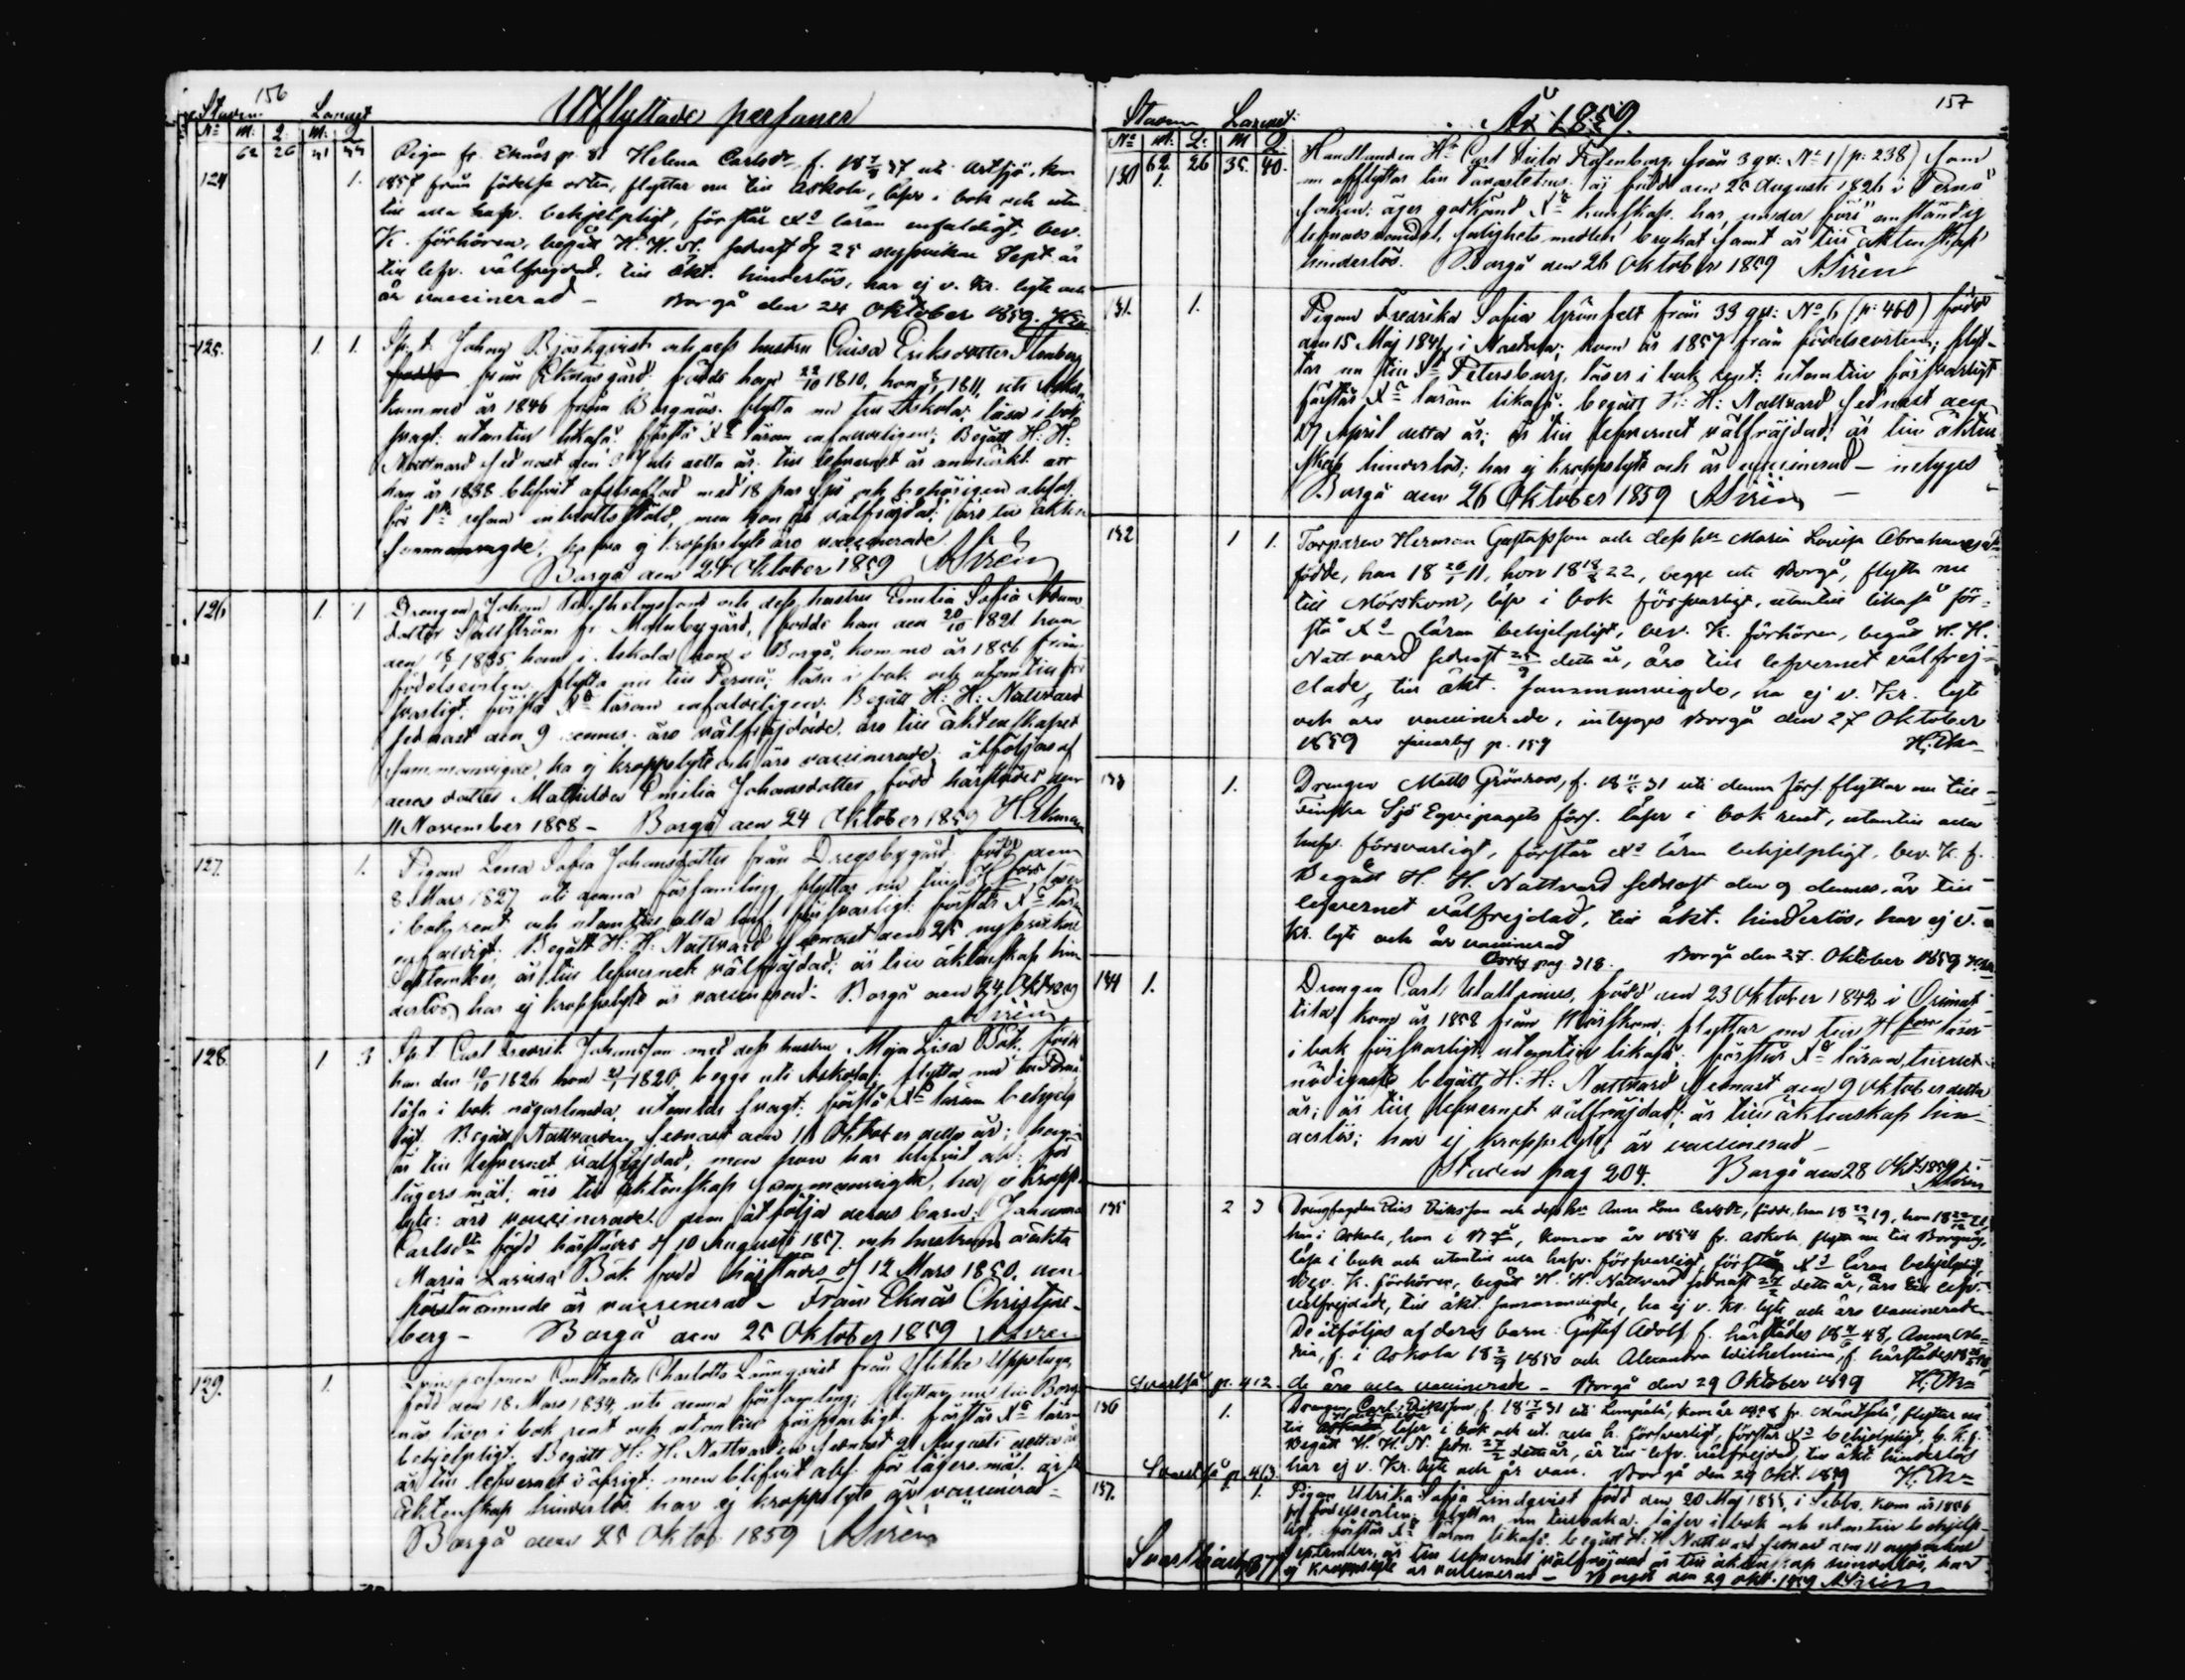 156
Staden Landet Utflyttade personer
No M: Q: M: Q
62 26 31 37
124 1. Pigan fr. Eknäs p. 8 Helena Carlsdr f. 18 37 uti Artsjö, kom
1857 från födelse orten, flyttar nu till Askola, läser i bok och utan
till alla hufv. behjelpligt, förstår Xs läran enfaldigt, bev.
K. förhören, begått H. H. N. sednast d 25 sistvikne Sept. är
till lefv. välfrejdad, till äkt. hinderlös, har ej v. Kr. lyte och
är vaccinerad - Borgå den 24 Oktober 1859.
125. 1. 1. Johan Björkqvist och dess hustru Lovisa Eriksdotter Stenberg
från Eknäs gård: födde han 22/10 1810, hon 1811, uti Askola,
kommo år 1846 från Borgnäs. flytta nu till Askola; läsa i bok
svagt: utantill likaså: förstå Xs läran enfaldeligen; Begått H: H:
Nattvard sednast den 3 Juli detta år: till lefvernet är anmärkt att
han år 1838 blifvit afstraffad med 18 par spö och behörigen absol.
för 1sta resan inbrotts stöld, men hon är välfrejdad; äro till äkten
sammanvigde, ha ej kroppslyte äro vaccinerade
Borgå den 24 Oktober 1859 ASirén
126 1. 1 Drengen Johan och dess hustru Emilia Sofia Adams
dotter Sällström fr. Malmbygård, födde han den 20/10 1821 hon
den 1835 han i Askola hon i Borgå, kommo år 1856 från
födelseorten. flytta nu till Pernå; läsa i bok och utantill för
svarligt: förstå Xs läran enfaldeligen. Begått H: H: Nattvard
sednast den 9 dennes. äro välfrejdade. äro till äktenskapet
sammanvigde, ha ej kroppslyte och äro vaccinerade; åtföljas af
deras dotter Mathilda Emilia Johansdotter född härstädes den
11 November 1858 - Borgå den 24 Oktober 1859 HEkman
127. 1. Pigan Lena Sofia Johansdotter från Dregsbygård, född den
8 Mars 1827 uti denna församling flyttar nu till
i bok rent och utantill alla hufv. försvarligt: förstår Xs läran
enfaldigt. Begått H: H: Nattvard sednast den 25 nystvikne
September, är till lefvernet välfrejdad; är till äktenskap hin
derlös, har ej kroppslyte är vaccinerad - Borgå den 24 Okt. 1859
ASirén
128 1 3 Carl Fredrik Johansson med dess hustru Maja Lisa Böök, födde
han den 10/10 1826 hon 1820, begge uti Askola: flytta nu till Pernå
läsa i bok någorlunda, utantill svagt: förstå Xs läran behjelp
ligt. Begått Nattvarden sednast den 16 Oktober detta år; han
är till lefvernet välfrejdad, men hon har blifvit abs: för
lägersmål; äro till äktenskap sammanvigde, har ej kropps
lyte: äro vaccinerade. dem åtfölja deras barn: Johanna
Carlsdtr född härstädes d 10 Augusti 1857. och hustruns oäkta
Maria Lovisa Böök född härstädes d 12 Mars 1850. den
förstnämnde är vaccinerad - Från Eknäs Christine-
berg - Borgå den 25 Oktober 1859 ASirén
129. 1. Constantia Charlotta Lönnqvist från
född den 18 Mars 1834, uti denna församling; flyttar nu till Borg
näs läser i bok rent och utantill försvarligt. förstår Xs läran
behjelpligt. Begått H: H. Nattvarden sednast 21 Augusti detta år
är till lefvernet i öfrigt: men blifvit abs. för lägersmål. är till
Äktenskap hinderlös har ej kroppslyte är vaccinerad -
Borgå den 25 Oktob. 1859 ASirén
157
Staden Landet: År 1859.
No M: Q: M Q
62. 26 35. 40.
130 1. Handlanden Hr Carl Victor Rosenborg från 3 qv: No 1 (p: 238) som
nu afflyttar till Tavastehus: är född den 25 Augusti 1826 i Perno
socken: äger godkänd Xs kunskap. har, under förd anständig
lefnadsvandel, salighets medlen brukat samt är till äktenskap
hinderlös. Borgå den 26 Oktober 1859 ASirén
131. 1. Pigan Fredrika Sofia Grönfelt från 39 qv: No 6 (p: 460) född
den 15 Maj 1841, i Nastola; kom år 1857 från födelseorten; flyt-
tar nu till St Petersburg. läser i bok rent: utantill försvarligt
förstår Xs läran likaså. begått H: H: Nattvard sednast den
17 April detta år; är till lefvernet välfräjdad; är till äkten
skap hinderlös; har ej kroppslyte och är vaccinerad - intyges
Borgå den 26 Oktober 1859 ASirén -
132 1 1. Torparen Herman Gustafsson och dess hu Maria Lovisa Abrahamsdr
födde, han 18 26/1 11, hon 18 18 22, begge uti Borgå, flytta nu
till Mörskom, läsa i bok försvarligt, utantill likaså för-
stå Xs läran behjelpligt, bev. K. förhören, begått H. H.
Nattvard sednast 25/9 detta år, äro till lefvernet välfrej-
dade, till äkt. sammanvigde, ha ej v. Kr. lyte
och äro vaccinerade, intyges Borgå den 27 Oktober
1859 p. 159 H.Ekn
133 1. Drengen Matts Grönroos, f. 18 31 uti denna förs. flyttar nu till
Finska Sjö Eqvipagets förs. läser i bok rent, utantill alla
hufv. försvarligt, förstår Xs läran behjelpligt, bev. K. f.
Begått H. H. Nattvard sednast den 9 dennes, är till
lefvernet välfrejdad, till äkt. hinderlös, har ej v.
Kr. lyte och är vaccinerad Borgå den 27. Oktober 1859
pag 318.
134 1. Drengen Carl Wallenius, född den 23 Oktober 1842 i Orimat
tila, kom år 1858 från Mörskom; flyttar nu till H:fors läser
i bok försvarligt, utantill likaså: förstår Xs läran, till det
nödigaste. begått H: H: Nattvard sednast den 9 Oktober detta
år; är till lefvernet välfräjdad; är till äktenskap hin
derlös; har ej kroppslyte; är vaccinerad -
Staden pag 204. Borgå den 28 Okt 1859
ASirén
135 2 3 Drengfogden Elias Eriksson och dess hu Anna Lena Carlsdr, födde, han 18 19, hon 18 21,
han i Askola, hon i Borgå, kommo år 1854 fr. Askola, flytta nu till Borgnäs,
läsa i bok och utantill alla hufv. försvarligt, förstår Xs läran behjelpligt,
Bev. K. förhören, begått H. H. Nattvard sednast detta år, äro till lefv.
välfrejdade, till äkt. sammanvigde, ha ej v. Kr. lyte och äro vaccinerade
De åtföljas af deras barn: Gustaf Adolf f. härstädes 18 48, Anna Ma-
ria, f. i Askola 18 1850 och Alexandra Wilhelmina, f. härstädes
Svartså p. 412. de äro alla vaccinerade - Borgå den 29 Oktober 1859 H.Ekn
136 1. Drengen Carl Eriksson, f. 18 31 uti Lempälä, kom år 1858 fr. Mäntsälä, flyttar nu
till läser i bok och ut. alla h. försvarligt, förstår Xs behjelpligt, b. k. f.
Begått H. H. N. sedn. detta år, är till lefv. välfrejdad, till äkt hinderlös
Svartså p. 413 har ej v. Kr. lyte och är vacc. Borgå den 29 Okt. 1859 H.Ekn
137. 1. Pigan Ulrika Sofia Lindqvist född den 20 Maj 1835, i Sibbo. kom år 1856
fr födelseorten; flyttar nu tillbaka. läser i bok och utantill behjelp-
ligt, förstår Xs läran likaså. begått H: H Nattvard sednast den 11 nystvikne
September, är till lefvernet välfräjdad är till äktenskap hinderlös, har
ej kroppslyte är vaccinerad - Borgå den 29 Okt. 1859 ASirén